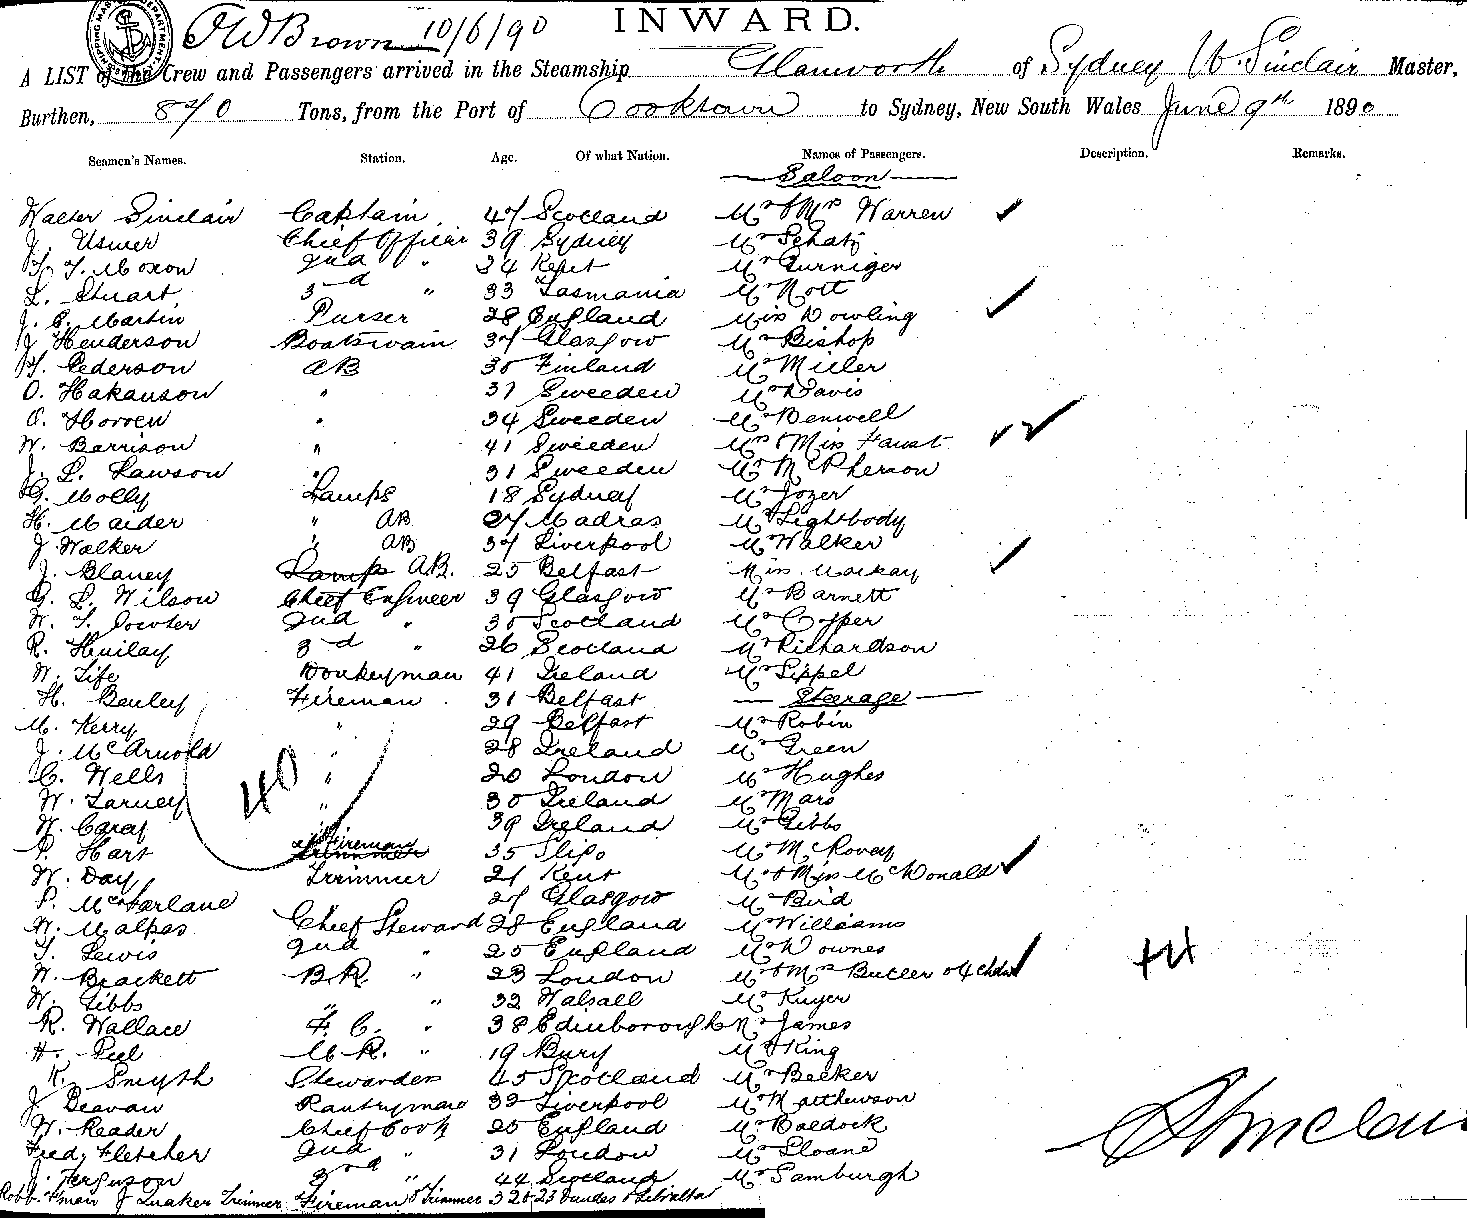 FWBrown 10/6/90
INWARD.
A LIST of the Crew and Passengers arrived in the Steamship Glanworth of Sydney W. Sinclair Master,
Burthen, 870 Tons, from the Port of Cooktown to Sydney, New South Wales June 9th 1890
Seamen's Names. Station. Age. Of what Nation. Names of Passengers. Description. Remarks.
Saloon
Walter Sinclair Captain 47 Scotland Mr & Mrs Warren
J. Usmer Chief Officer 39 Sydney Mr Schatz
Moxon 2nd " 34 Mr Gurniger
L. Stuart 3rd " 33 Tasmania Mr Nott
J. C. Martin Purser 28 England Miss Dowling
J Henderson Boatswain 37 Glasgow Mr Bishop
H. Pederson AB 30 Finland Mr Miller
O. Hakanson " 37 Sweeden Mr Davis
O. " 34 Sweeden Mr Benwell
W. Barrison " 41 Sweeden Mrs & Miss Faust
J. L. Lawson " 31 Sweeden Mr McPherson
G. Molly Lamps 18 Sydney Mr Jozer
H. Maider " AB 27 Madras Mr Lightbody
J Walker " AB 37 Liverpool Mr Walker
J. Blaney Lamps AB. 25 Belfast Miss Mackay
G. L. Wilson Chief Engineer 39 Glasgow Mr Barnett
W. T. 2nd " 30 Scotland Mr
R. 3rd " 26 Scotland Mr Richardson
W. Fife Donkeyman 41 Ireland Mr Sippel
H. Fireman 31 Belfast Steerage
M. Kerry " 29 Belfast Mr Robin
J. McArnold " 28 Ireland Mr Green
C. Wells " 20 London Mr Hughes
40
W. " 30 Ireland Mr Mars
W. Carey " 39 Ireland Mr Gibbs
P. Hart Fireman 35 Slipo Mr McRovey
W. Day Trimmer 21 Kent Mr & Miss McDonald
P. McFarlane 27 Glasgow Mr Bird
W. Malpas Chief Steward 28 England Mr Williams
T. Lewis 2nd " 25 England Mr Downes
W. Brackett B.R. " 23 London Mr & Mrs Butler & 4 chdn
44
W. Gibbs " " 32 Walsall Mr Kuyer
R. Wallace F. C. " 38 Edinborough Mr James
H. Peel M. R. " 19 Bury Mr King
K. Smyth Stewardess 45 Scotland Mr Becker
J Deavan Pantryman 32 Liverpool Mr Matthewson
W. Reader Chief Cook 25 England Mr Baldock
Fred. Fletcher 2nd " 31 London Mr Sloane
J. Ferguson 3rd " 44 Scotland Mr Samburgh
J Quaker Trimmer Fireman & Trimmer 32 & 23 Dundee & Gibraltar